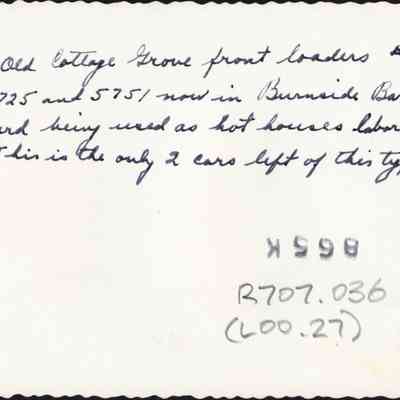 Old Cottage Grove front loaders
725 and 5751 now in Burnside Ba
ard being used as hot houses labor
This is the only 2 cars left of this ty
866 K
R707.036
(L00.27)